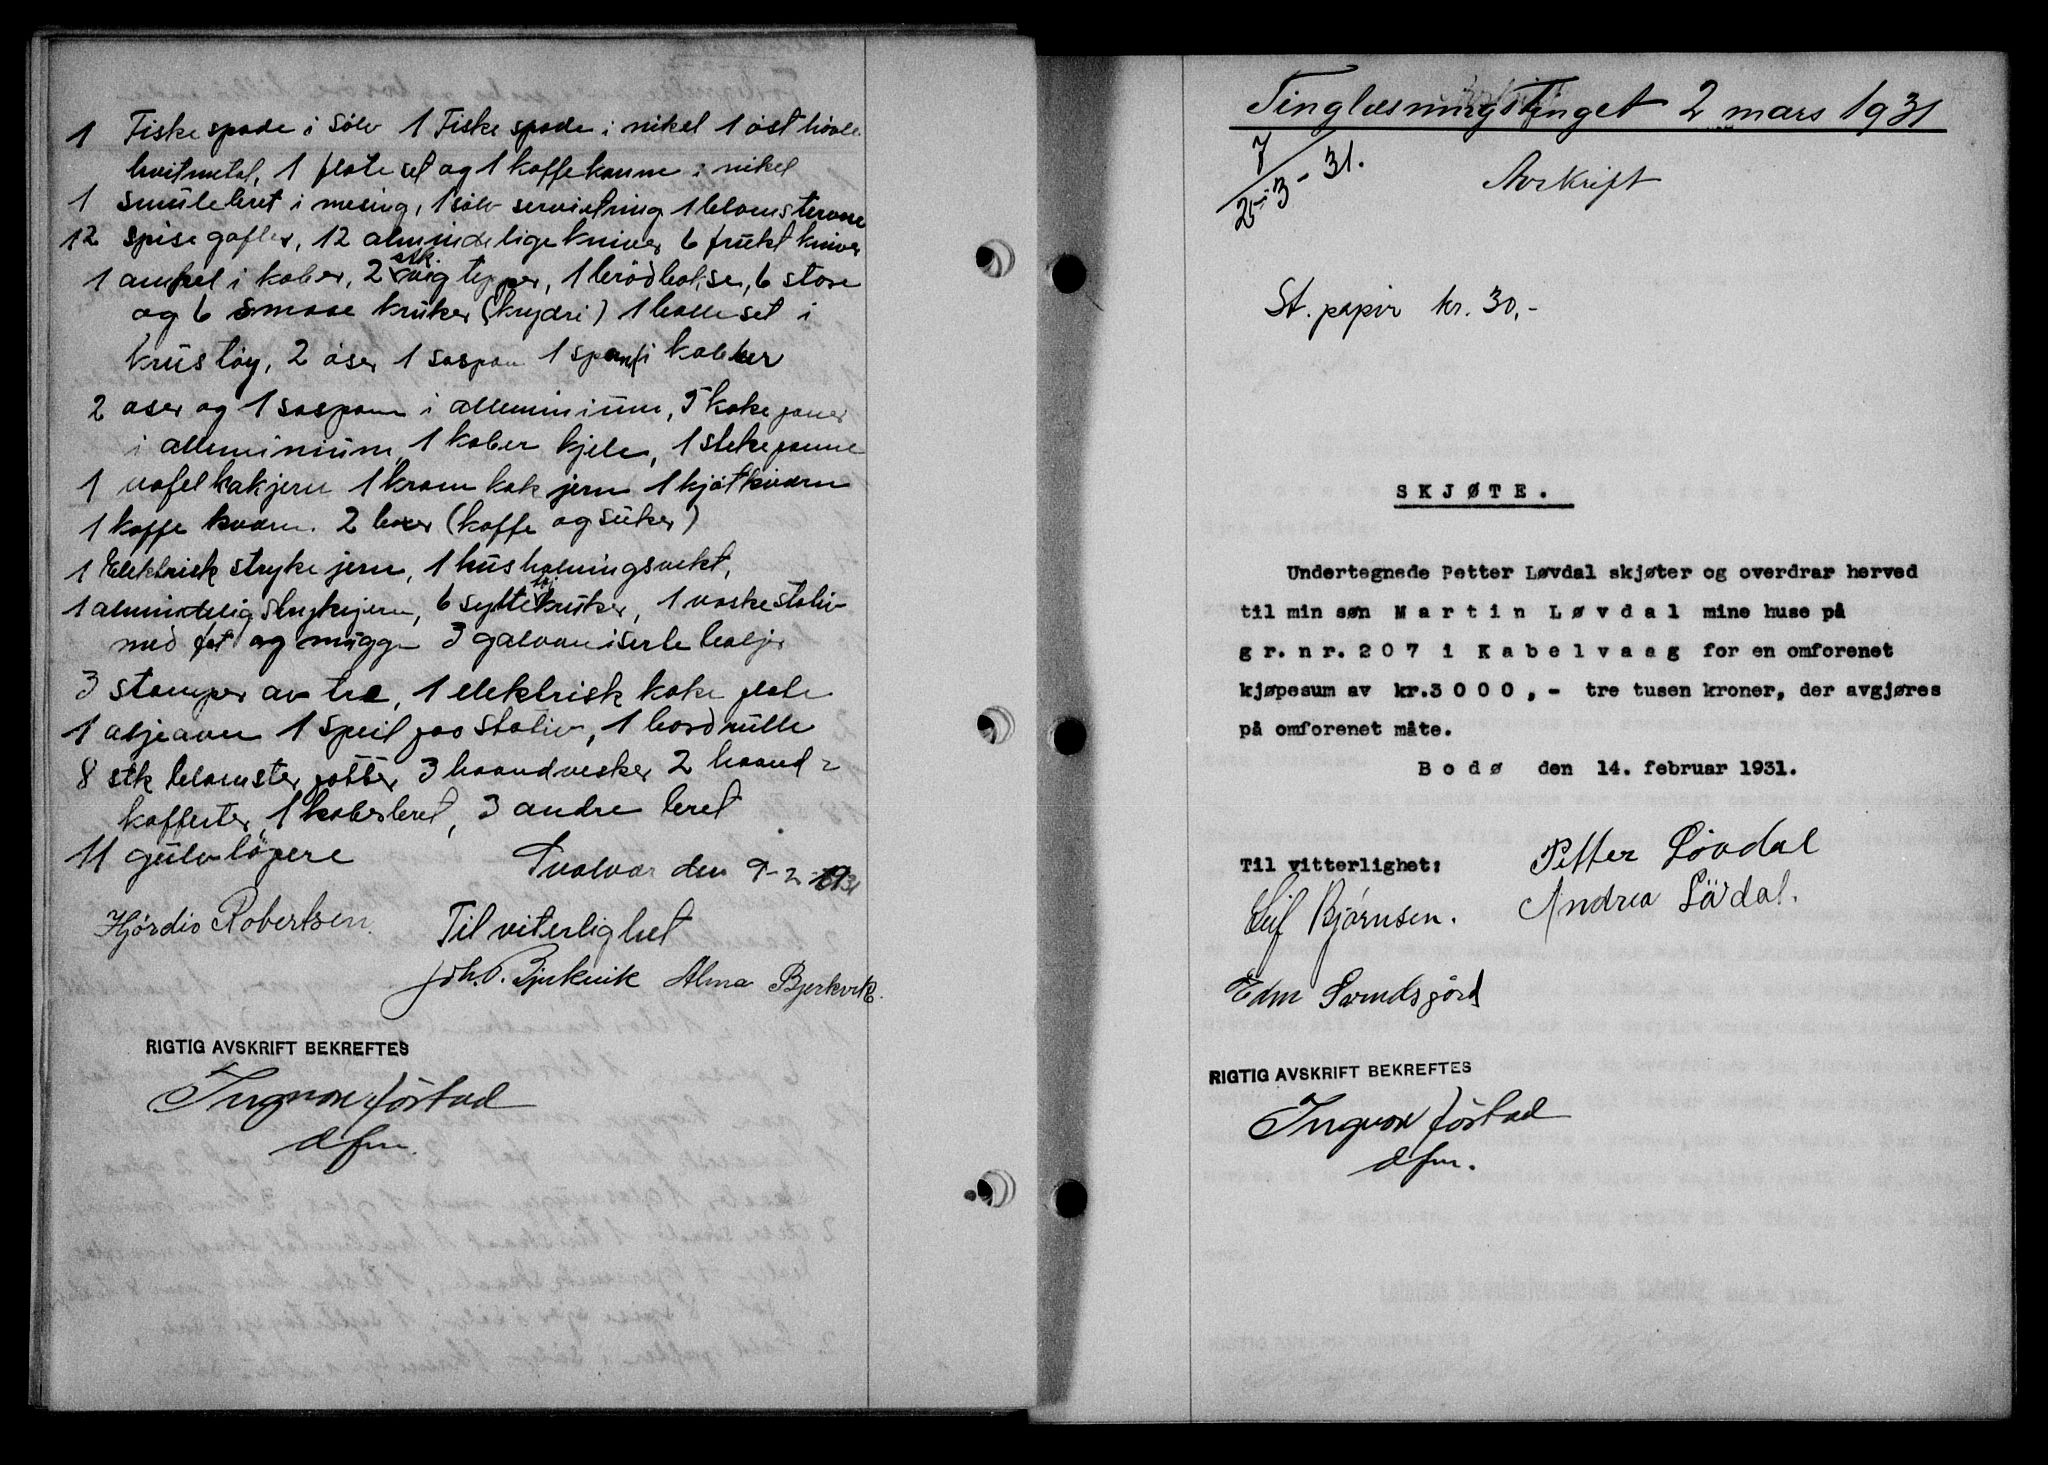 1 Fiskespade i sølv 1 Fiske spade i nikel 1 ost høvle
hvitmetal, 1 flote set og 1 koffekanne i nikel
1 smuleberet i mesing, 1 sølv serviet ring 1 blomstervase
12 spise gafler, 12 almindelige kniver 6 frukt kniver
1 ampel i kober, 2 stk. tepper, 1 brødbokse, 6 store
og 6 smaae kruker (krydri) 1 bolleset i
krustøy, 2 øser 1 sospan 1 spann i kobber
2 øser og 1 sospann i alleminium, 5 koke paner
i alleminium, 1 kober kjele, 1 stekepanne
1 vafelkakjern 1 kram kak jern 1 kjøtkværn
1 koffe kværn. 2 boxer (koffe og suker)
1 Elektrisk stryke jern, 1 husholningsvekt,
1 almindelig strykejern, 6 sylte tøi kruker, 1 vaskestativ
med fat og mugge 3 galvaniserte baljer
3 stamper av tre, 1 elektrisk koke plate
1 speil paa stativ, 1 bordrulle
8 stk blomster potter 3 haandvesker 2 haand-
kofferter, 1 koberbret, 3 andre bret
11 gulvløpere
Svolvær den 9-2-1931
Hjørdis Robertsen.
Til viterlighet
Joh. P. Bjerkvik Alma Bjerkvik.
RIGTIG AVSKRIFT BEKREFTES
Ingvar Jørstad
dfm.
Tinglæsningstinget 2 mars 1931
7
25-3-31.
Avskrift
St. papir kr. 30,-
SKJØTE.
Undertegnede Petter Løvdal skjøter og overdrar herved
til min søn Martin Løvdal mine huse på
gr.nr.207 i Kabelvaag for en omforenet
kjøpesum av kr.3000,- tre tusen kroner, der avgjøres
på omforenet måte.
Bodø den 14. februar 1931.
Til vitterlighet:
Petter Løvdal
Andrea Lövdal.
Leif Bjørnsen.
Edm Svendsgård
RIGTIG AVSKRIFT BEKREFTES
Ingvar Jørstad
dfm.